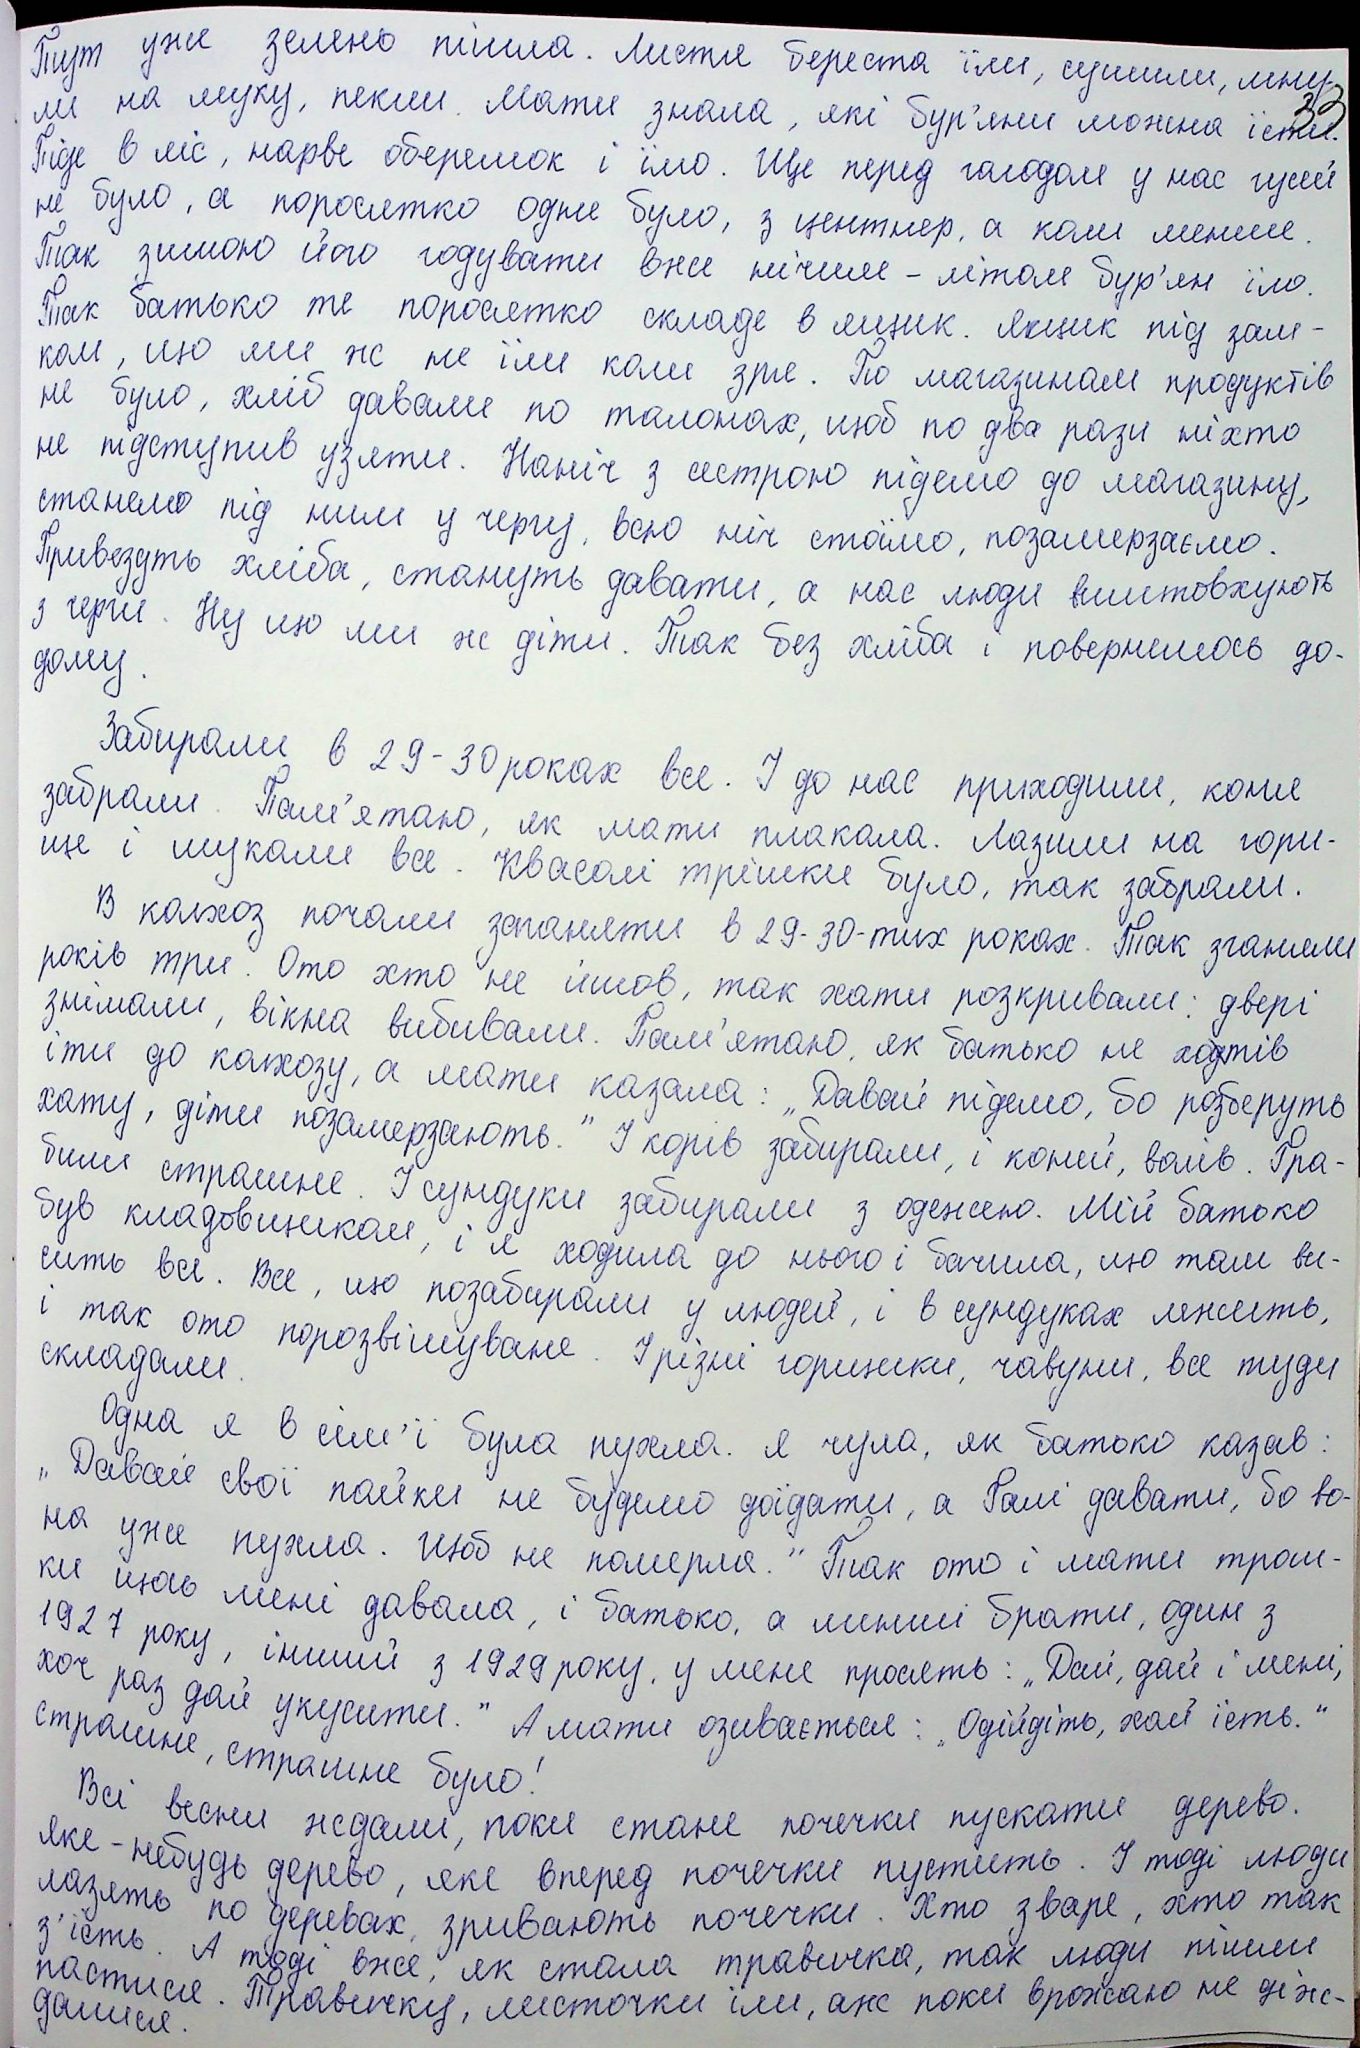 Тут уже зелень пішла. Листя береста їли, сушили, мну-
33
ли на муку, пекли. Мати знала, які бур'яни можна їсти.
Піде в ліс, нарве оберемок і їмо. Ще перед голодом у нас гусей
не було, а поросятко одне було, з центнер, а коли менше.
Так зимою його годувати вже нічим – літом бур'ян їло.
Так батько те поросятко складе в ящик. Ящик під зам-
ком, що ми ж не їли коли зря. По магазинам продуктів
не було, хліб давали по талонах, щоб по два рази ніхто
не підступив узяти. Наніч з сестрою підемо до магазину,
станемо під ним у чергу, всю ніч стоїмо, позамерзаємо.
Привезуть хліба, стануть давати, а нас люди виштовхують
з черги. Ну що ми ж діти. Так без хліба і повернемось до-
дому.
Забирали в 29-30 роках все. І до нас приходили, коня
забрали. Пам'ятаю, як мати плакала. Лазили на гори-
ще і шукали все. Квасолі трішки було, так забрали.
В колхоз почали заганяти в 29-30-тих роках. Так зганяли
років три. Ото хто не йшов, так хати розкривали: двері
знімали, вікна вибивали. Пам'ятаю, як батько не хотів
іти до колхозу, а мати казала: „Давай підемо, бо розберуть
хату, діти позамерзають." І корів забирали, і коней, волів. Гра-
били страшне. І сундуки забирали з одежею. Мій батько
був кладовщиком, і я ходила до нього і бачила, що там ви-
сить все. Все, що позабирали у людей, і в сундуках лежить,
і так ото порозвішуване. І різні горшки, чавуни, все туди
складали.
Одна я в сім'ї була пухла. Я чула, як батько казав:
„Давай свої пайки не будемо доїдати, а Галі давати, бо во-
на уже пухла. Щоб не померла." Так ото і мати трош-
ки щось мені давала, і батько, а менші брати, один з
1927 року, інший з 1929 року, у мене просять: „Дай, дай і мені,
хоч раз дай укусити." А мати озивається: „Одійдіть, хай їсть."
Страшне, страшне було!
Всі весни ждали, поки стане почечки пускати дерево.
Яке-небудь дерево, яке вперед почечки пустить. І тоді люди
лазять по деревах, зривають почечки. Хто зваре, хто так
з'їсть. А тоді вже, як стала травичка, так люди пішли
пастися. Травичку, листочки їли, аж поки врожаю не діж-
дались.